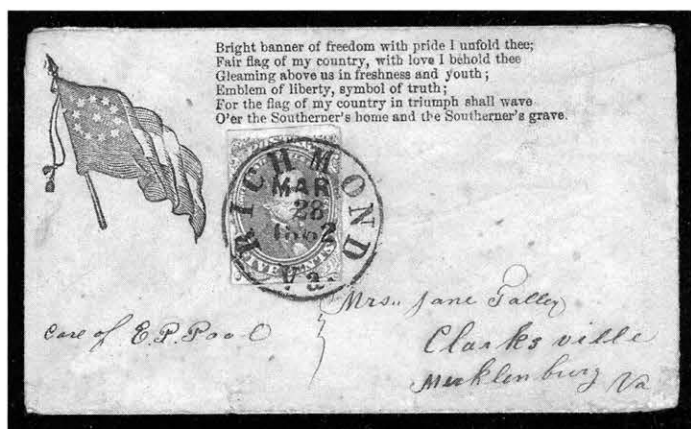 Bright banner of freedom with pride I unfold thee;
Fair flag of my country, with love I behold thee
Gleaming above us in freshness and youth;
Emblem of liberty, symbol of truth;
For the flag of my country in triumph shall wave
O'er the Southerner's home and the Southerner's grave.
RICHMOND
MAR
28
1862
Va.
FIVE CENTS
Mrs.. Jane Talley
care of E.P. Pool
Clarksville
Mecklenburg Va